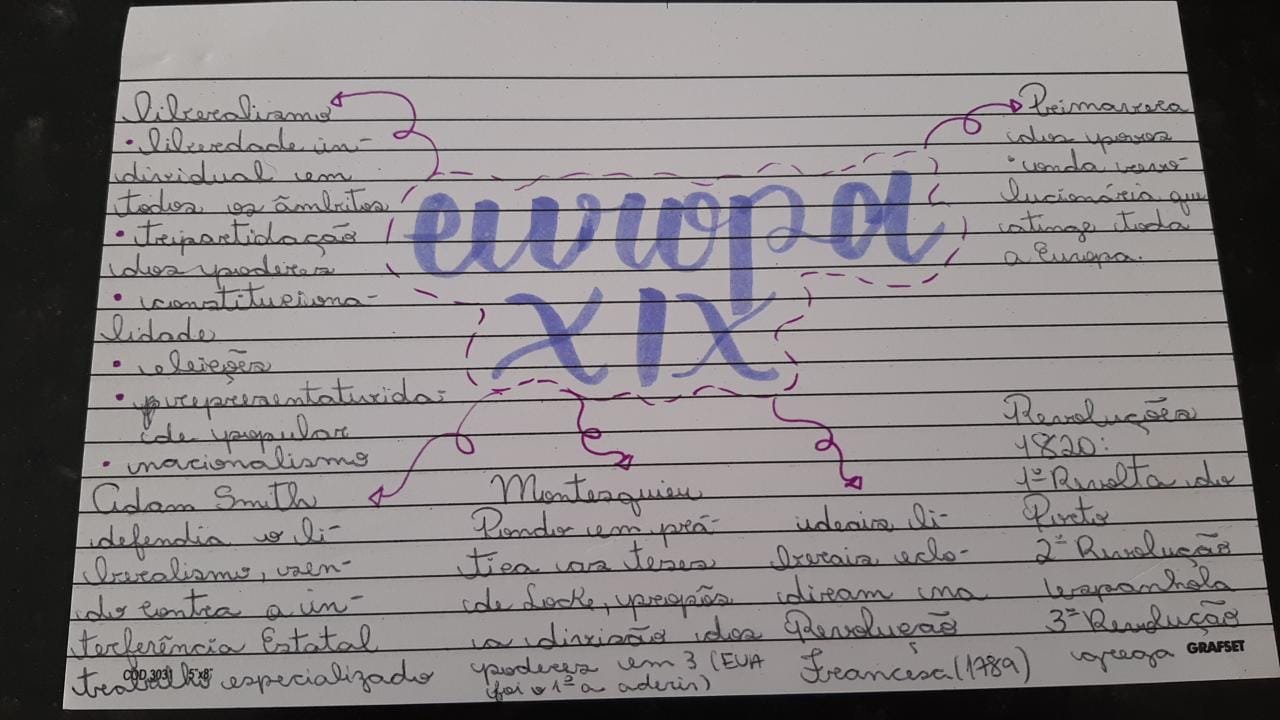 europa
XIX
liberalismo
• liberdade in-
dividual em
todos os âmbitos
• tripartidação
dos poderes
• constituciona-
lidade
• eleições
• representativida-
de popular
• nacionalismo
Primavera
dos povos
• onda revo-
lucionária que
atinge toda
a Europa.
Adam Smith
defendia o li-
beralismo, sen-
do contra a in-
terferência Estatal
trabalho especializado
Montesquieu
Pondo em prá-
tica as teses
de Locke, propôs
a divisão dos
poderes em 3 (EUA
foi o 1º a aderir)
ideais li-
berais eclo-
diram na
Revolução
Francesa (1789)
Revoluções
1820:
1º Revolta do
Porto
2ª Revolução
espanhola
3ª Revolução
grega
CÓD.3031 5"x8"
GRAFSET